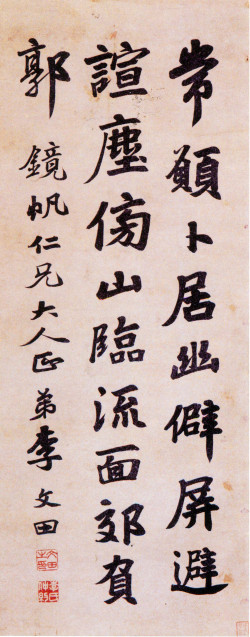 常願卜居幽僻屏避
諠塵傍山臨流面郊負
郭
鏡帆仁兄大人正 弟李文田